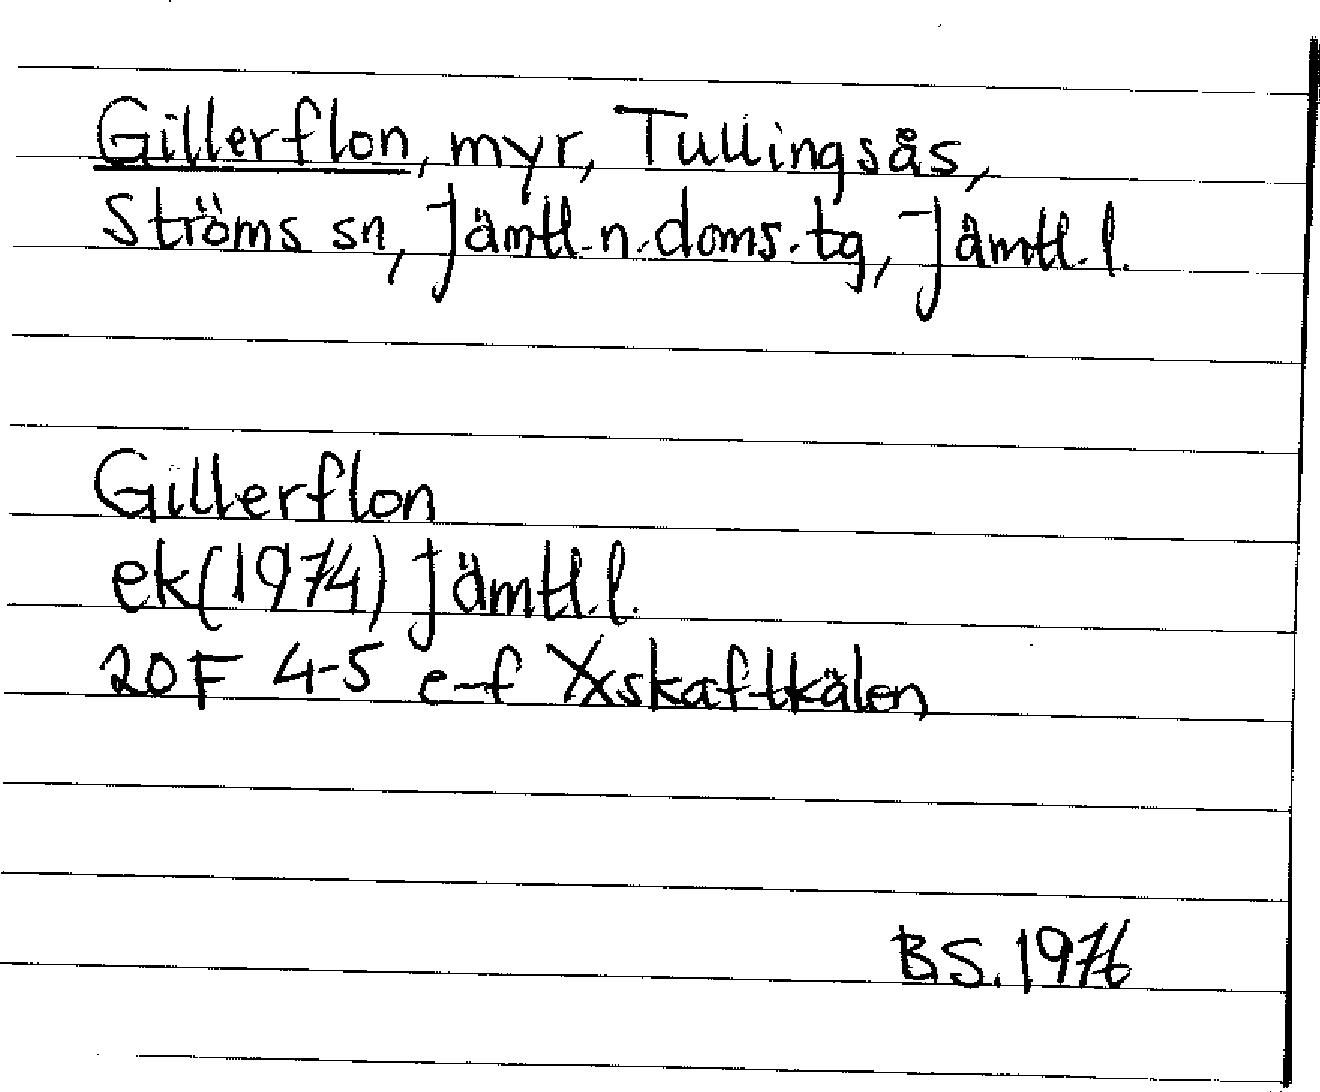 Gillerflon, myr, Tullingsås,
Ströms sn, Jämtl. n. doms. tg, Jämtl. l.
Gillerflon
ek (1974) Jämtl. l.
20F 4-5 e-f Yxskaftkälen
BS. 1976